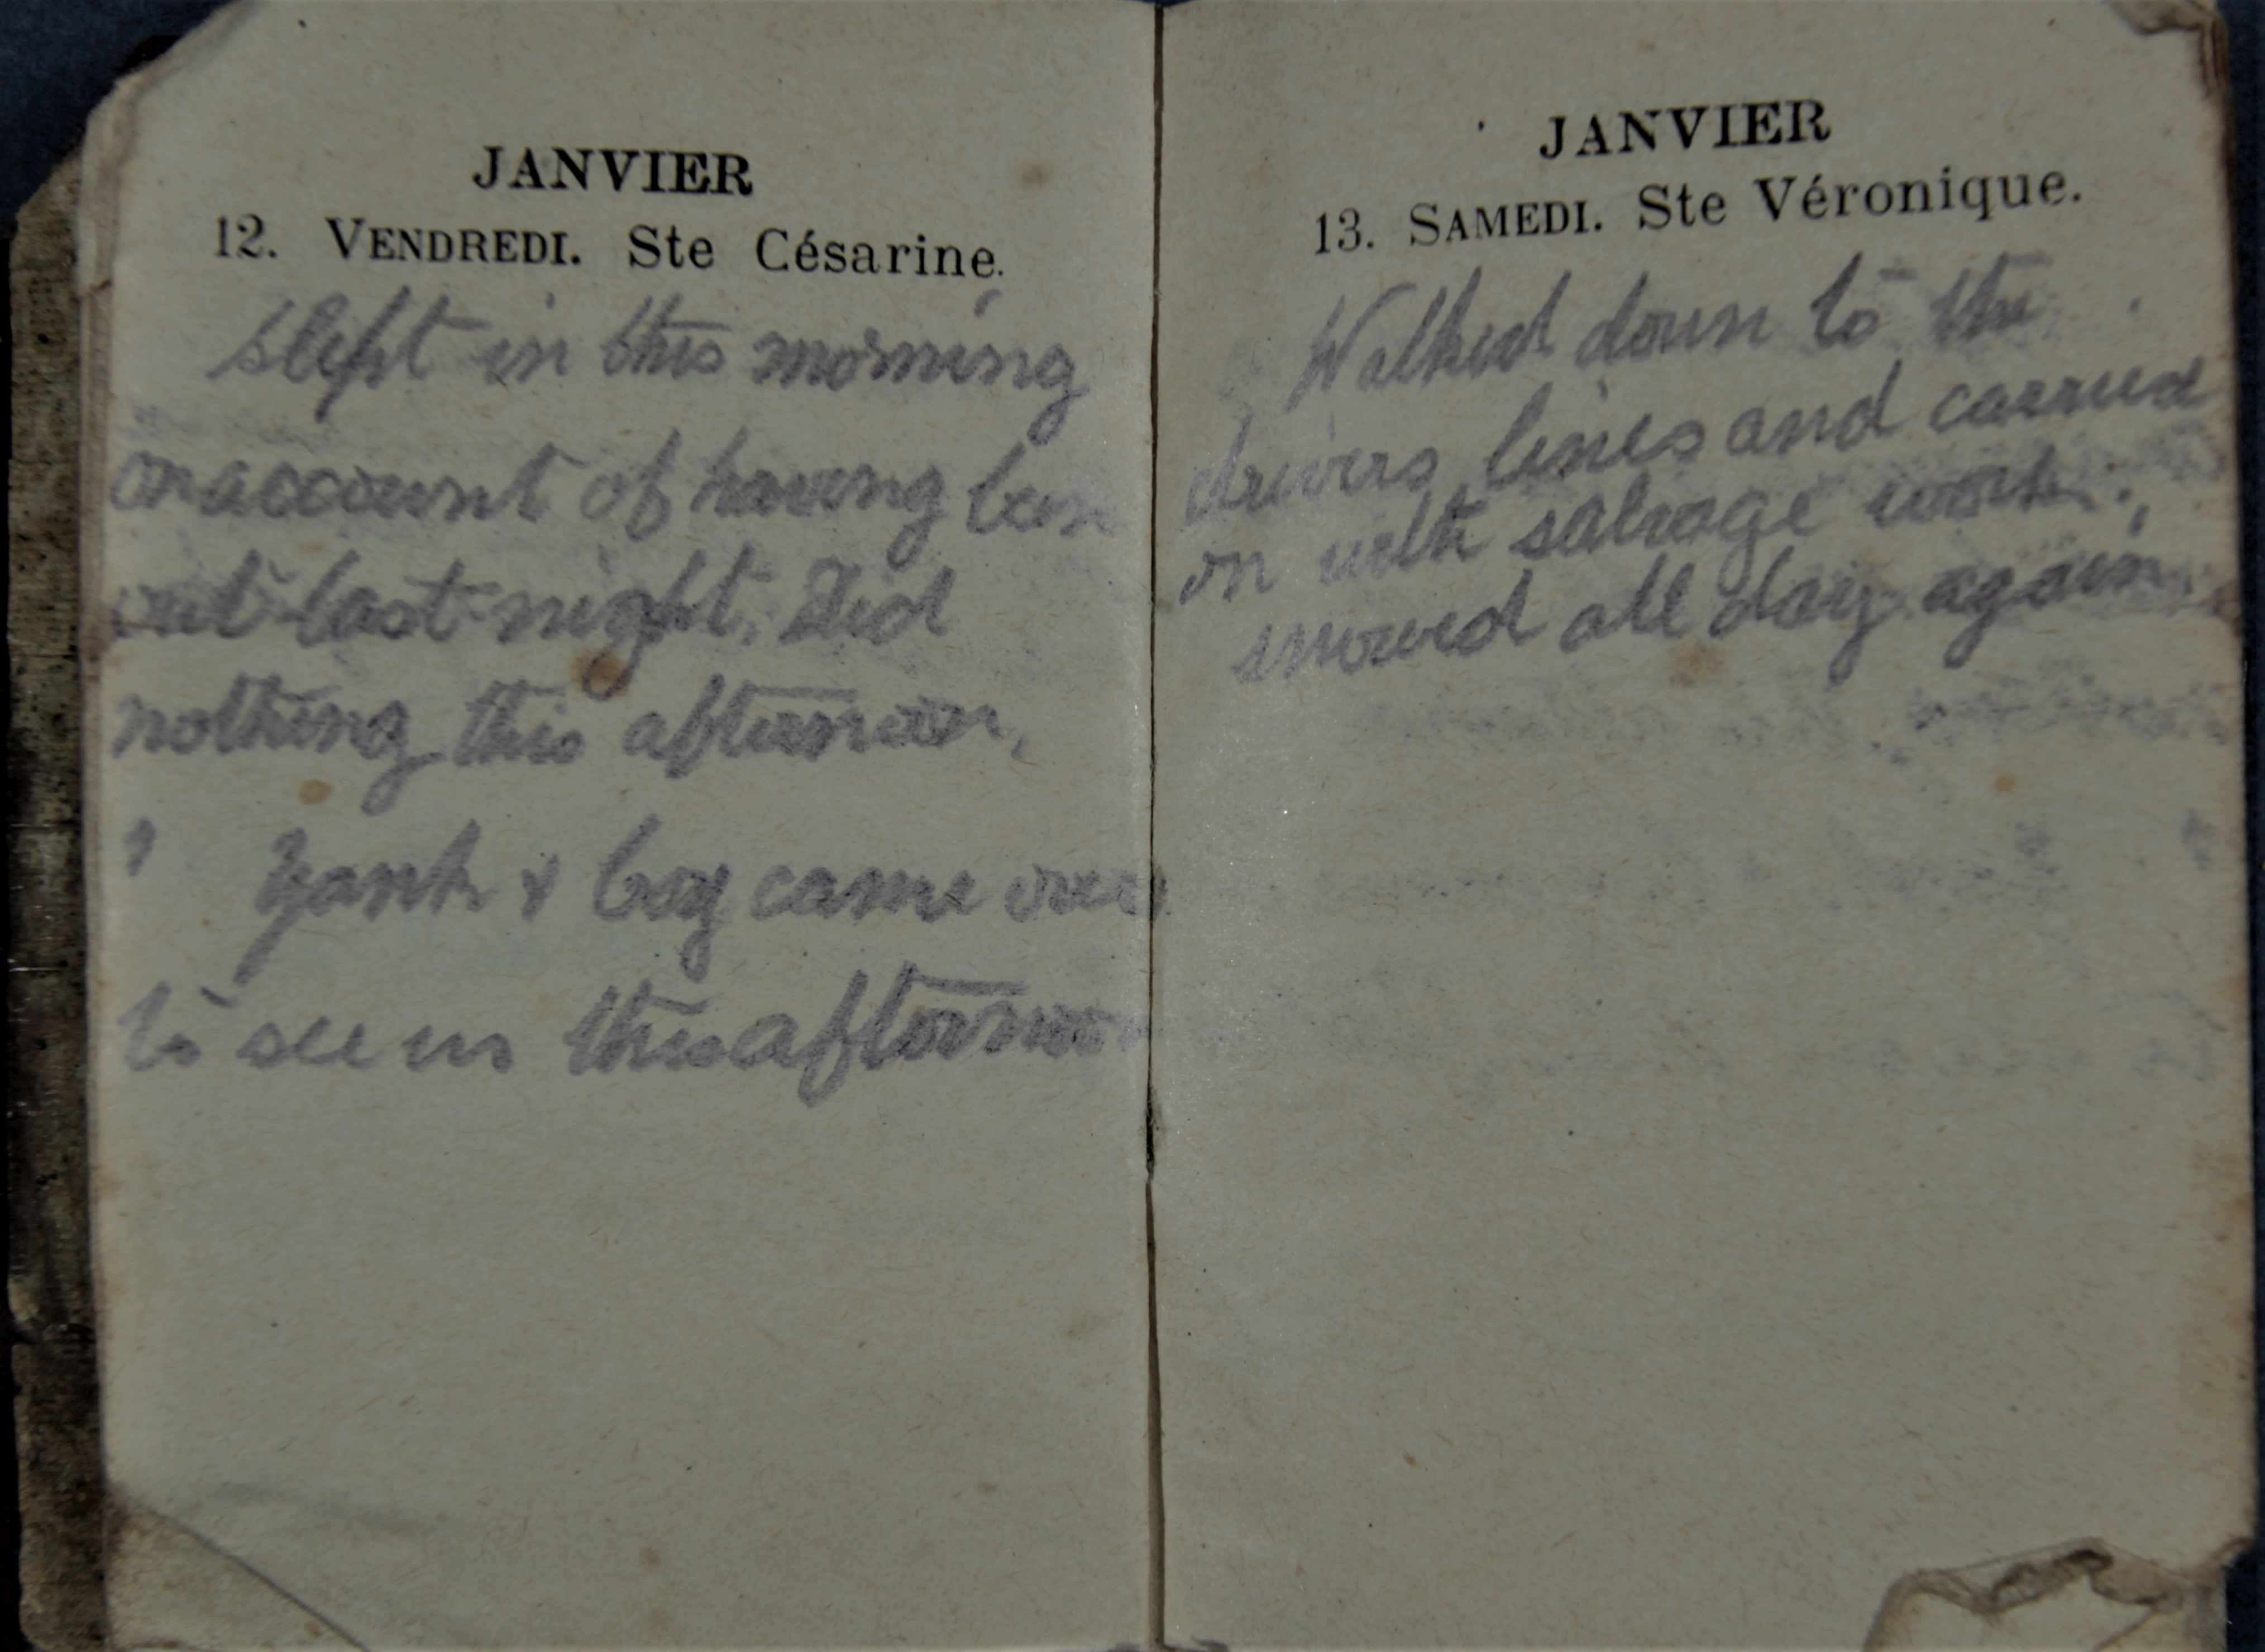 JANVIER
12. VENDREDI. Ste Césarine.
Slept in this morning
on account of having been
out last night. Did
nothing this afternoon.
Yank & boy came over
to see us this afternoon
JANVIER
13. SAMEDI. Ste Véronique.
Walked down to the
drivers lines and carried
on with salvage work.
snowed all day again.